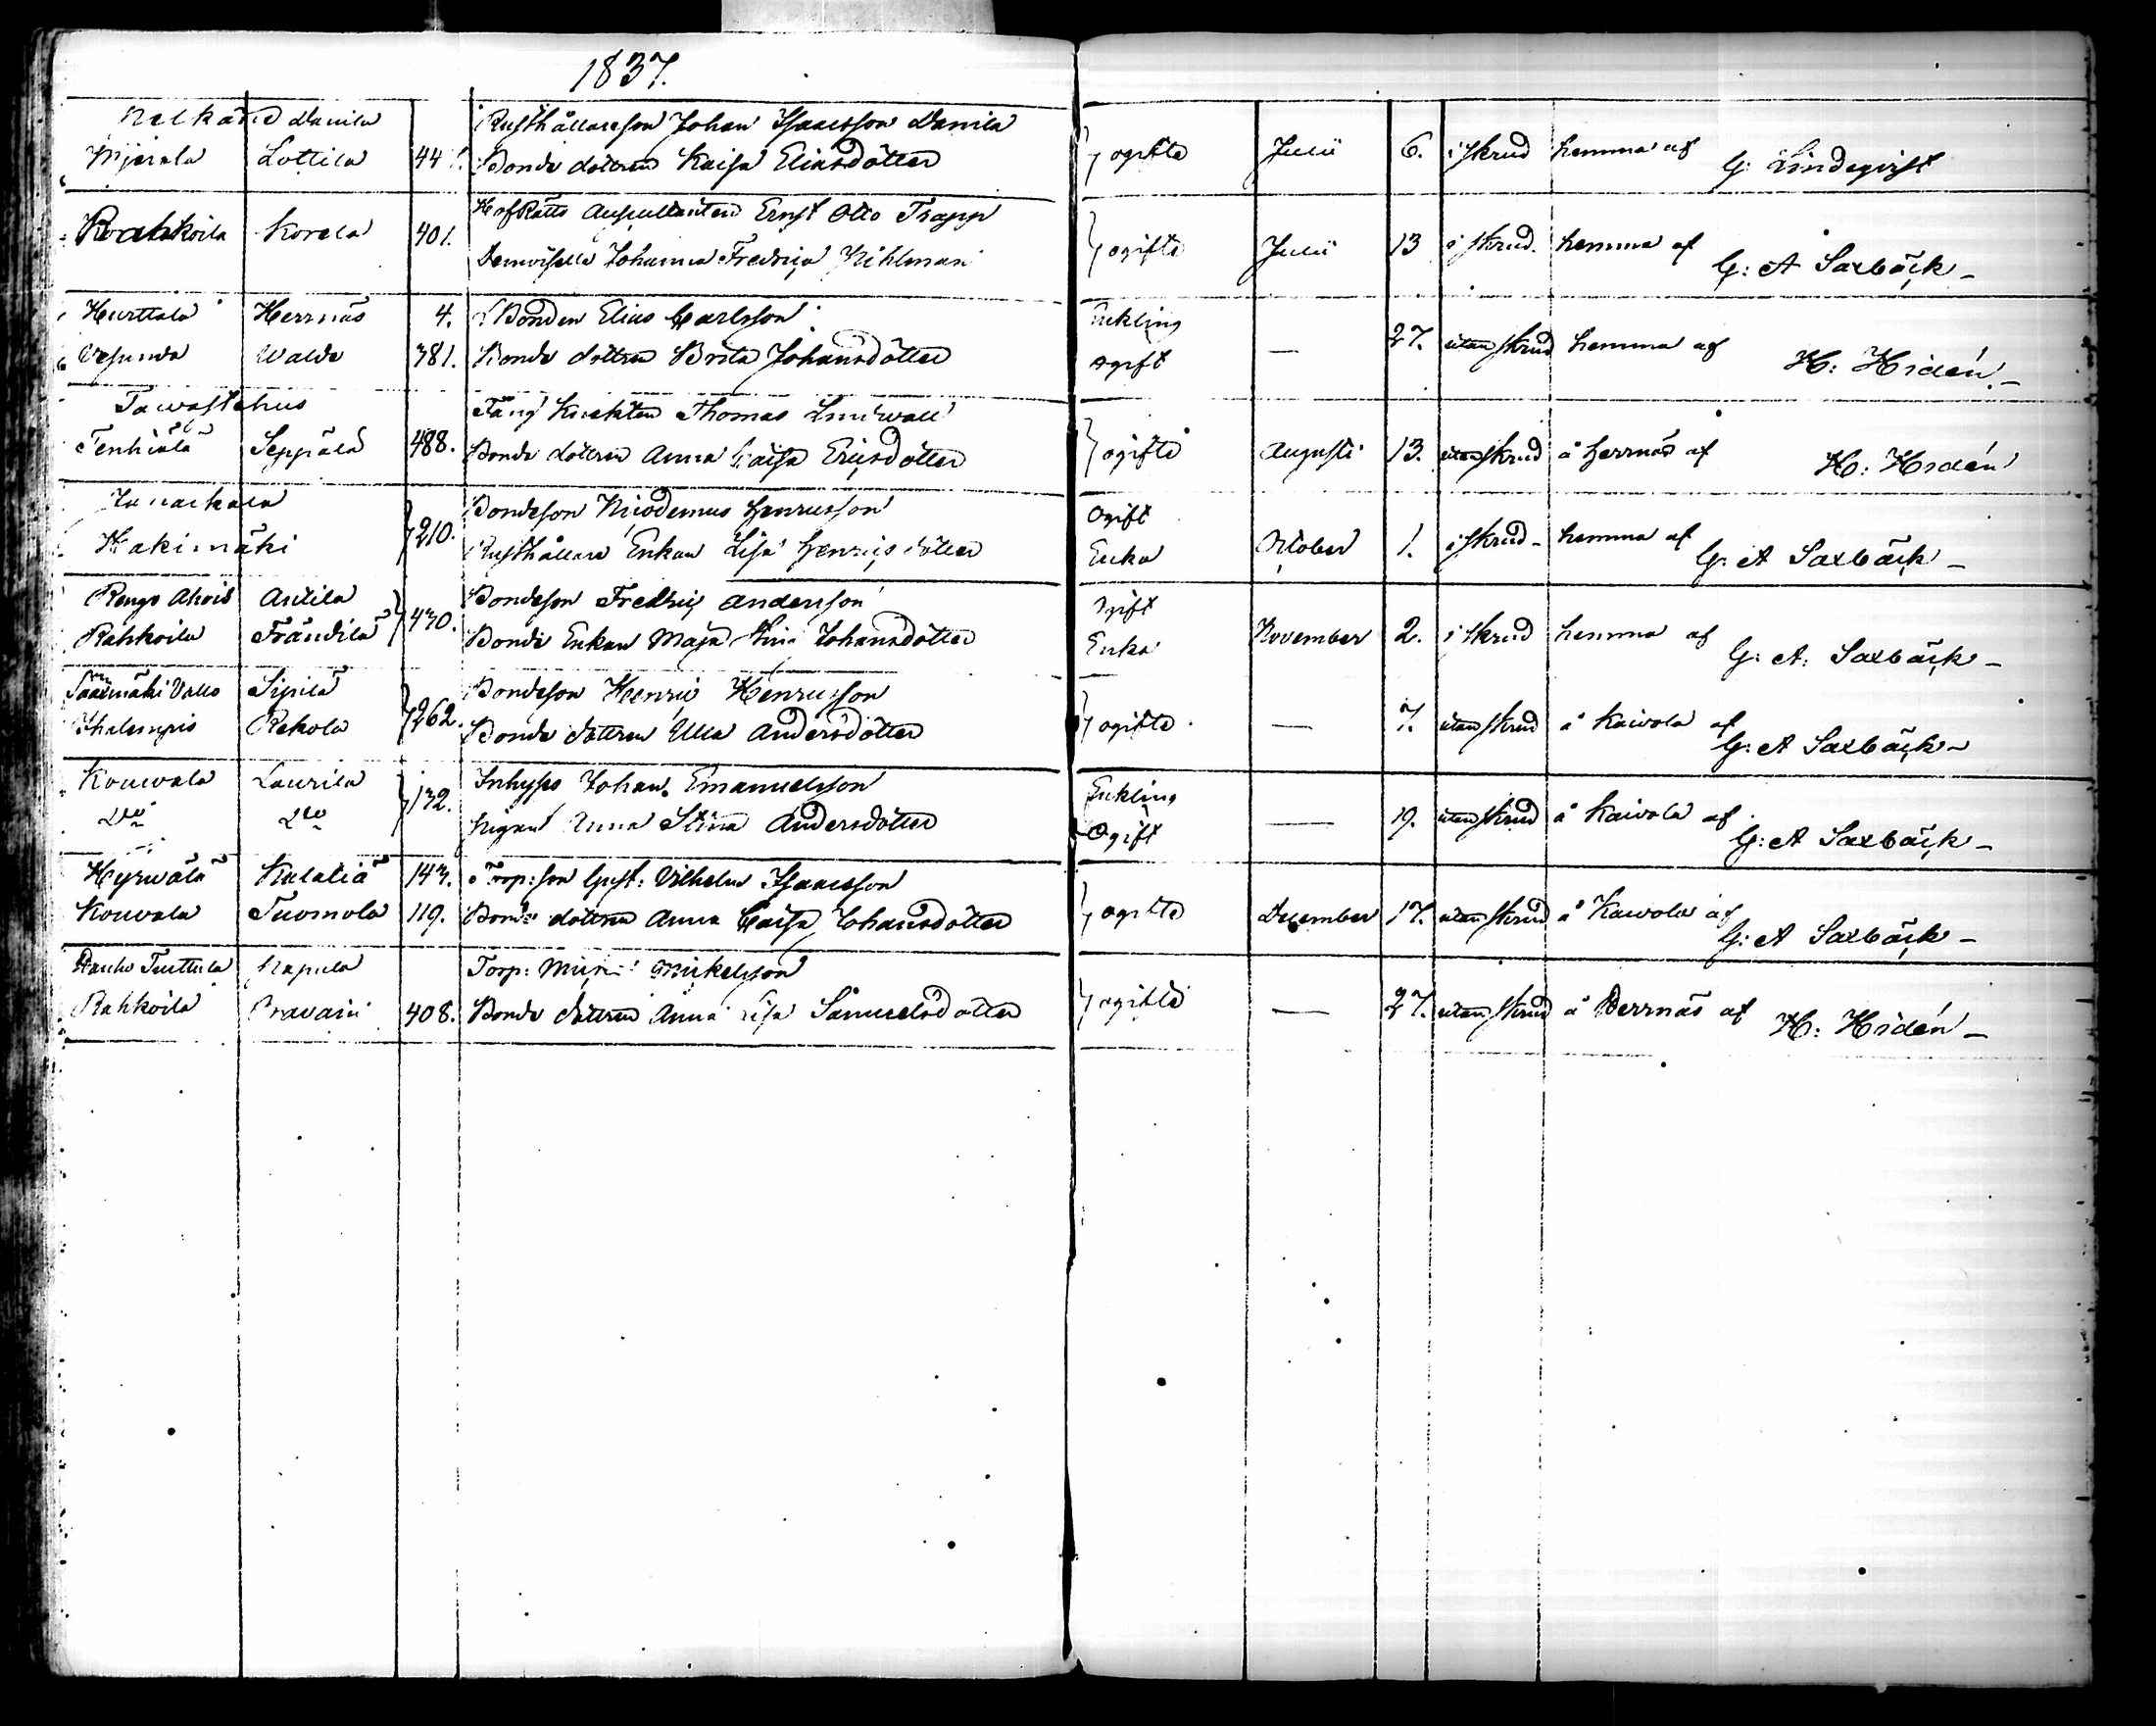 1837.
Danila Rusthållareson Johan Isaacsson Danila
Lottila 44 Bonde dottren Kaisa Eliasdotter } ogifte Julii 6. i skrud hemma af G: Lindeqvist
HofRätts Auscultanten Ernst Otto Trapp
Rahkoila Korela 401. Demoiselle Johanna Fredrica Kihlman } ogifte Julii 13 i skrud. hemma af G: A Saxbäck
Hurttala Herrnäs 4. Bonden Elias Carlsson Enkling
Vesunda Walde 381. Bonde dottren Brita Johansdotter ogift — 27. utan skrud hemma af H: Hidén
Tawastehus Thomas
Tenhiälä Seppälä 488. Bonde dottren Anna Caisa Ericsdotter } ogifte Augusti 13. utan skrud å Herrnäs af H: Hidén
Janackala Bondeson Nicodemus Henricsson Ogift
Hakimäki } 210. Rusthållare Enkan Lisa Henricsdotter Enka October 1. i skrud hemma af G: A Saxbäck
Rengo Ahois Anttila Bondeson Fredric Andersson Ogift
Rahkoila Frändilä } 430. Bonde Enkan Maja Johansdotter Enka November 2. i skrud hemma af G: A: Saxbäck
Sipilä Bondeson Henric Henricsson
Ihalempis Rekola } 262. Bonde dottren Ulla Andersdotter } ogifte — 7. utan skrud å Kaivola af G: A Saxbäck
Kouvala Laurila Inhyses Johan Emanuelsson Enkling
Do Do } 132. Pigan Anna Stina Andersdotter Ogift — 19. utan skrud å Kaivola af G: A Saxbäck
Hyrwälä 143. Torp: son Gust: Vilhelm Isaacsson
Kouvala Tuomola 119. Bonde dottren Anna Caisa Johansdotter } ogifte December 17. utan skrud å Kaivola af G: A Saxbäck
Tuittula Torp: Michelsson
Rahkoila Pravain 408. Bonde dottren Anna Lisa Samuelsdotter } ogifte — 27. utan skrud å Herrnäs af H: Hidén